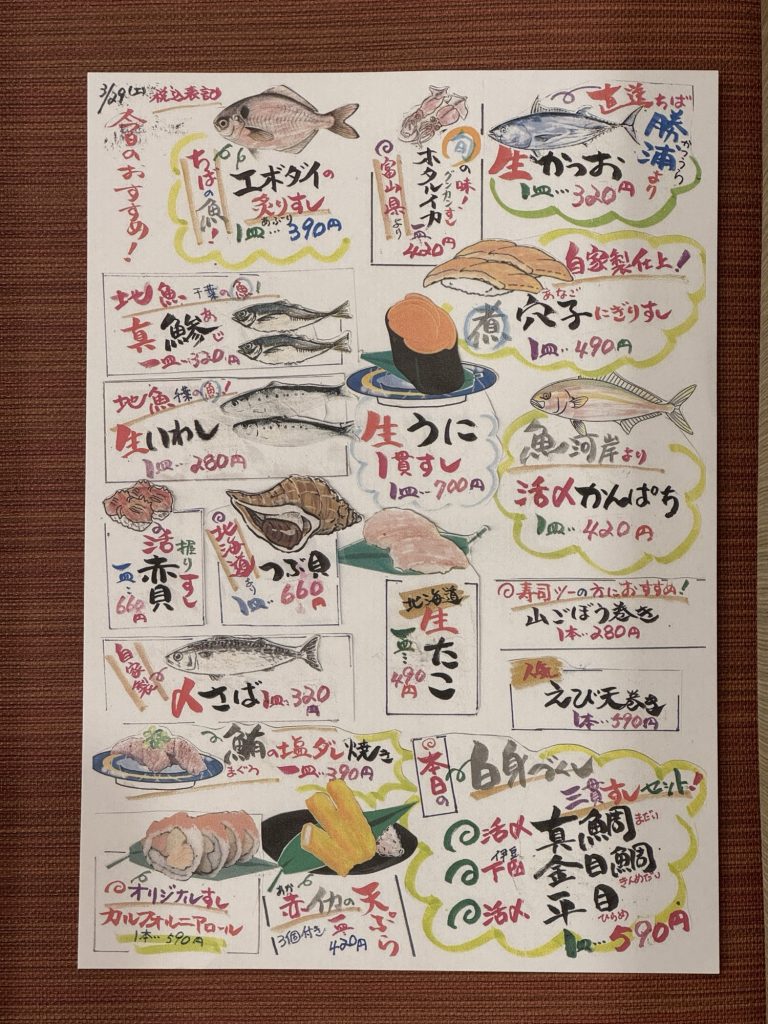 3/29(土)
税込表記
今日のおすすめ!
ちばの魚!
エボダイの
炙りすし
あぶり
1皿…390円
旬の味!
グンカンすし
ホタルイカ
富山県より
一皿…420円
直送ちば
勝浦より
かつうら
生かつお
1皿…320円
自家製仕上!
煮穴子にぎりすし
あなご
1皿…490円
地魚千葉の魚!
真鯵
あじ
一皿…320円
地魚千葉の魚!
生いわし
1皿…280円
生うに
1貫すし
1皿…700円
魚河岸より
活〆かんぱち
1皿…420円
活赤貝
握りすし
一皿…660円
北海道より
つぶ貝
1皿…660円
北海道
生たこ
一皿…490円
寿司ツーの方におすすめ!
山ごぼう巻き
1本…280円
自家製
〆さば1皿…320円
人気
えび天巻き
1本…590円
鮪の塩ダレ焼き
まぐろ
一皿…390円
本日の
白身づくし
三貫すしセット!
活〆真鯛
まだい
伊豆
下田金目鯛
きんめだい
活〆平目
ひらめ
1皿…590円
オリジナルすし
カルフォルニアロール
1本…590円
赤イカの天ぷら
あか
3個付き
一皿…420円